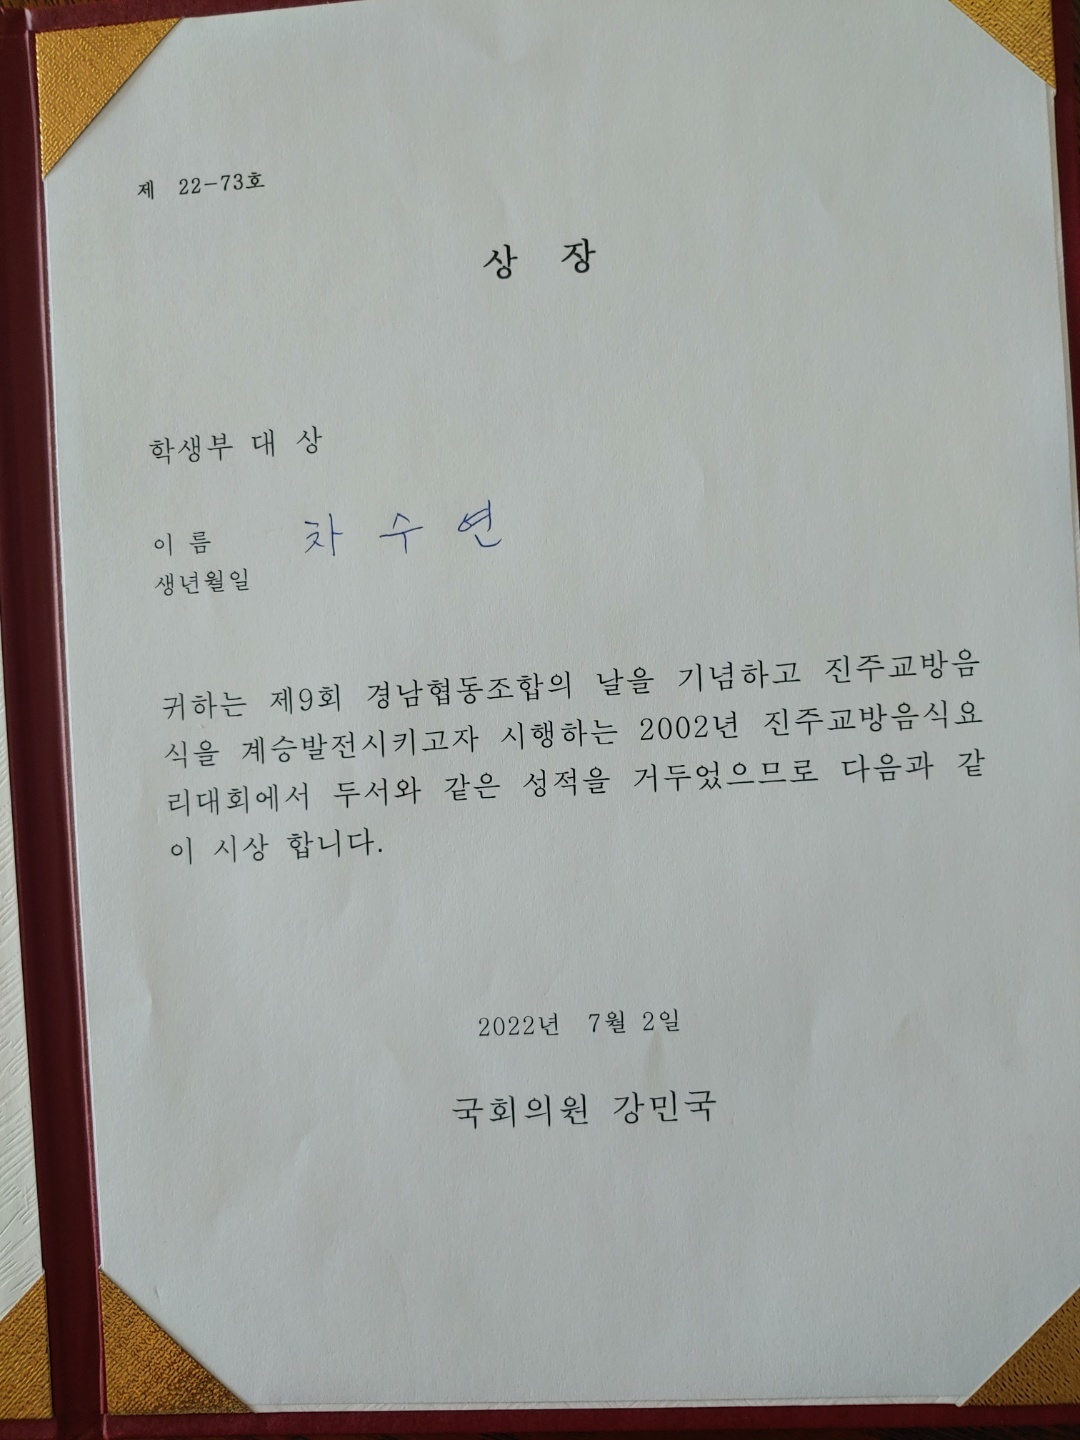 제 22-73호
상 장
학생부 대 상
이 름 차 수 연
생년월일
귀하는 제9회 경남협동조합의 날을 기념하고 진주교방음
식을 계승발전시키고자 시행하는 2002년 진주교방음식요
리대회에서 두서와 같은 성적을 거두었으므로 다음과 같
이 시상 합니다.
2022년 7월 2일
국회의원 강민국